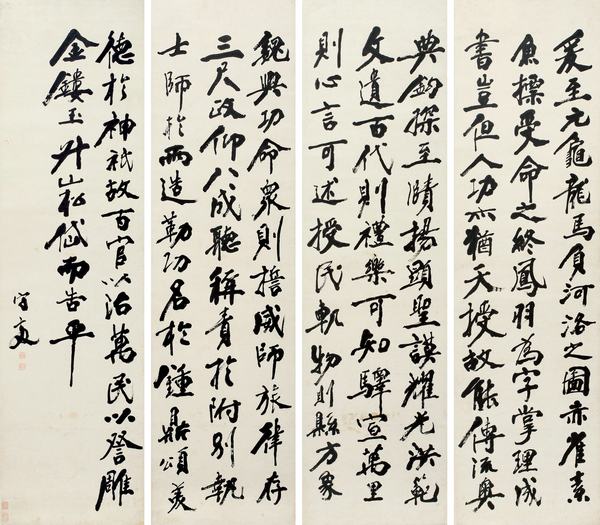 爰至元龜龍馬負河洛之圖赤雀素
魚標受命之終鳳羽為字掌理成
書豈但人功亦猶天授故能傳流奧
典鈎探至賾揚顯聖謨耀光洪範
文遺百代則禮樂可知驛宣萬里
則心言可述授民軌物則縣方象
魏興功命衆則誓威師旅律存
三尺政仰八成聽稱責於附別執
士師於兩造勒功名於鍾鼎頌美
德於神祇故百官以治萬民以詧雕
金鏤玉升山松岱而告平
守敬